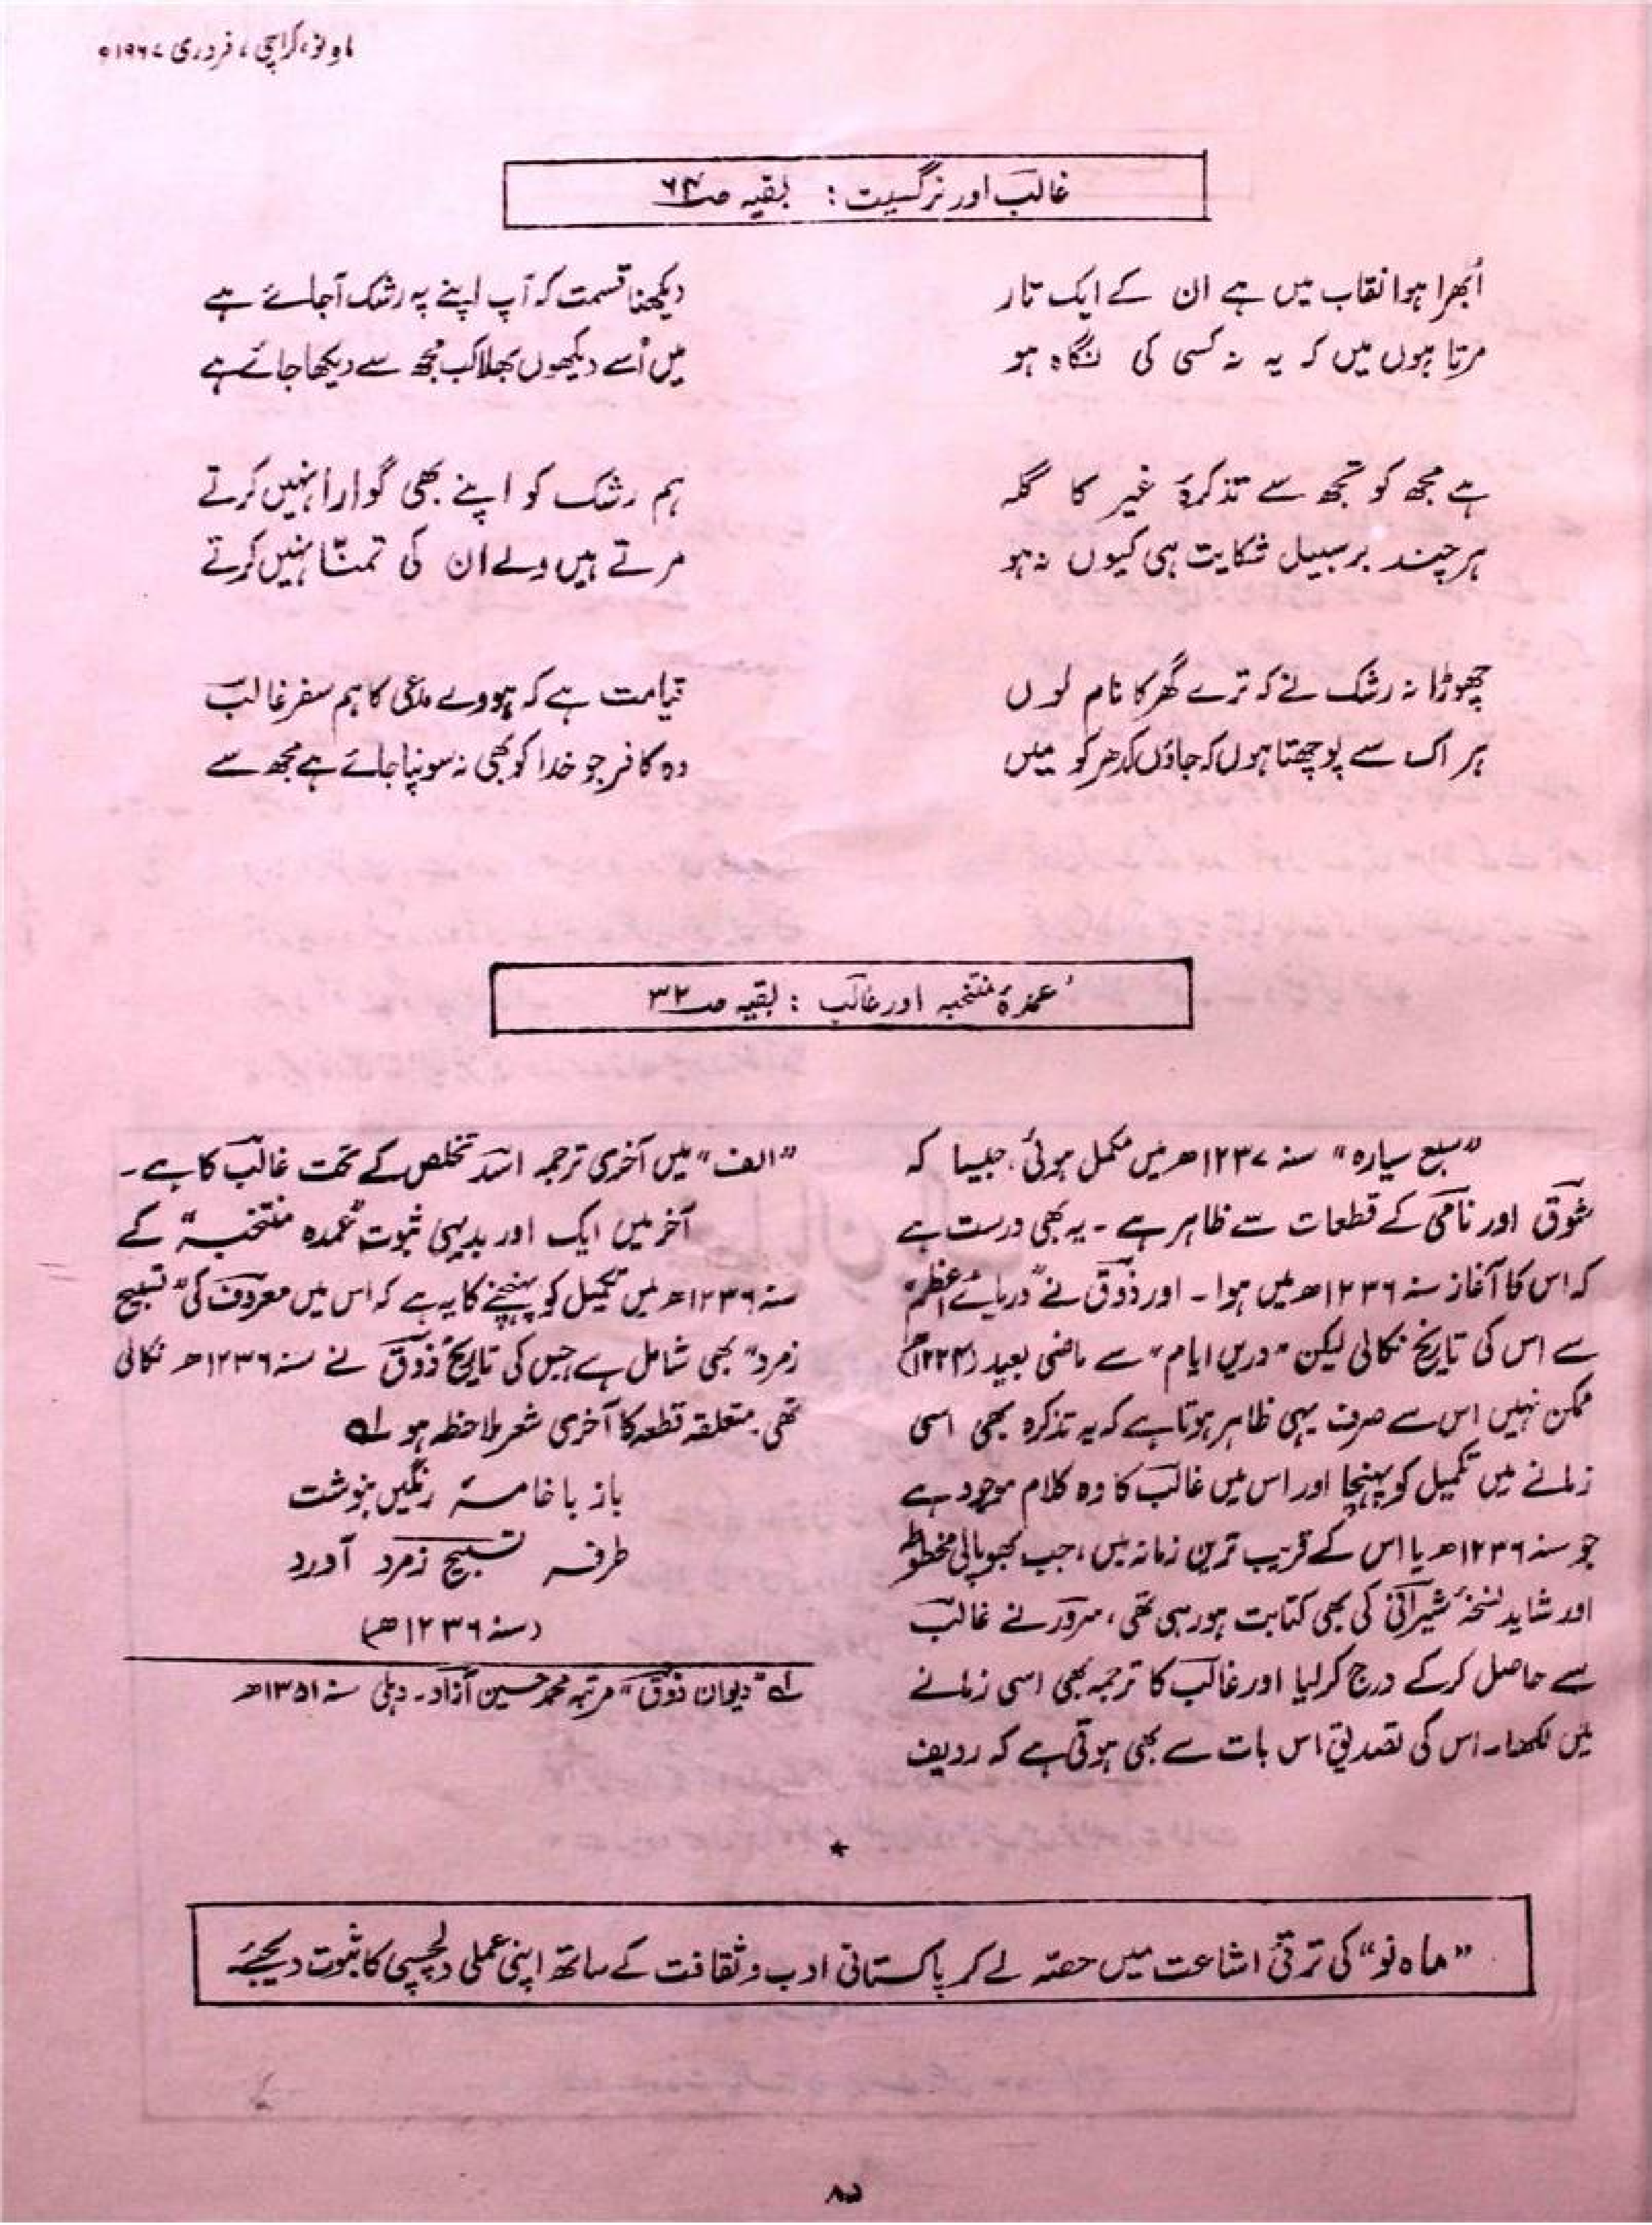 ماہِ نو، کراچی، فروری ۱۹۶۷ء
غالب اور نرگسیت : بقیہ صـ ۶۴
اُبھرا ہوا نقاب میں ہے ان کے ایک تار
مرتا ہوں میں کہ یہ نہ کسی کی نگاہ ہو
ہے مجھ کو تجھ سے تذکرۂ غیر کا گلہ
ہر چند بر سبیل شکایت ہی کیوں نہ ہو
چھوڑا نہ رشک نے کہ ترے گھر کا نام لوں
ہر اک سے پوچھتا ہوں کہ جاؤں کدھر کو میں
دیکھنا قسمت کہ آپ اپنے پہ رشک آجائے ہے
میں اُسے دیکھوں بھلا کب مجھ سے دیکھا جائے ہے
ہم رشک کو اپنے بھی گوارا نہیں کرتے
مرتے ہیں ولے ان کی تمنّا نہیں کرتے
قیامت ہے کہ ہووے مدعی کا ہم سفر غالب
وہ کافر جو خدا کو بھی نہ سونپا جائے ہے مجھ سے
عمدۂ منتخبہ اور غالب : بقیہ صـ ۳۲
"سبع سیارہ" سنہ ۱۲۳۷ھ میں مکمل ہوئی، جیسا کہ
شوق اور نامی کے قطعات سے ظاہر ہے ۔ یہ بھی درست ہے
کہ اس کا آغاز سنہ ۱۲۳۶ھ میں ہوا ۔ اور ذوق نے "دریائے اعظم"
سے اس کی تاریخ نکالی لیکن "دریں ایام" سے ماضی بعید (۱۲۲۴ھ)
ممکن نہیں اس سے صرف یہی ظاہر ہوتا ہے کہ یہ تذکرہ بھی اسی
زمانے میں تکمیل کو پہنچا اور اس میں غالب کا وہ کلام موجود ہے
جو سنہ ۱۲۳۶ھ یا اس کے قریب ترین زمانہ میں، جب بھوپالی مخطوطہ
اور شاید نسخۂ شیرانی کی بھی کتابت ہو رہی تھی، سرور نے غالب
سے حاصل کرکے درج کرلیا اور غالب کا ترجمہ بھی اسی زمانے
میں لکھا۔ اس کی تصدیق اس بات سے بھی ہوتی ہے کہ ردیف
"الف" میں آخری ترجمہ اسد تخلص کے تحت غالب کا ہے ۔
آخر میں ایک اور بدیہی ثبوت "عمدہ منتخبہ" کے
سنہ ۱۲۳۶ھ میں تکمیل کو پہنچنے کا یہ ہے کہ اس میں معروف کی "تسبیح
زمرد" بھی شامل ہے جس کی تاریخ ذوق نے سنہ ۱۲۳۶ھ نکالی
تھی۔ متعلقہ قطعہ کا آخری شعر ملاحظہ ہو ؎۱
باز با خامہ رنگیں بنوشت
طرفہ تسبیح زمرد آورد
(سنہ ۱۲۳۶ھ)
؎۱ "دیوان ذوق" مرتبہ محمد حسین آزاد ۔ دہلی سنہ ۱۳۵۱ھ
*
"ماہ نو" کی ترقیٔ اشاعت میں حصّہ لے کر پاکستانی ادب و ثقافت کے ساتھ اپنی عملی دلچسپی کا ثبوت دیجئے
۸۵